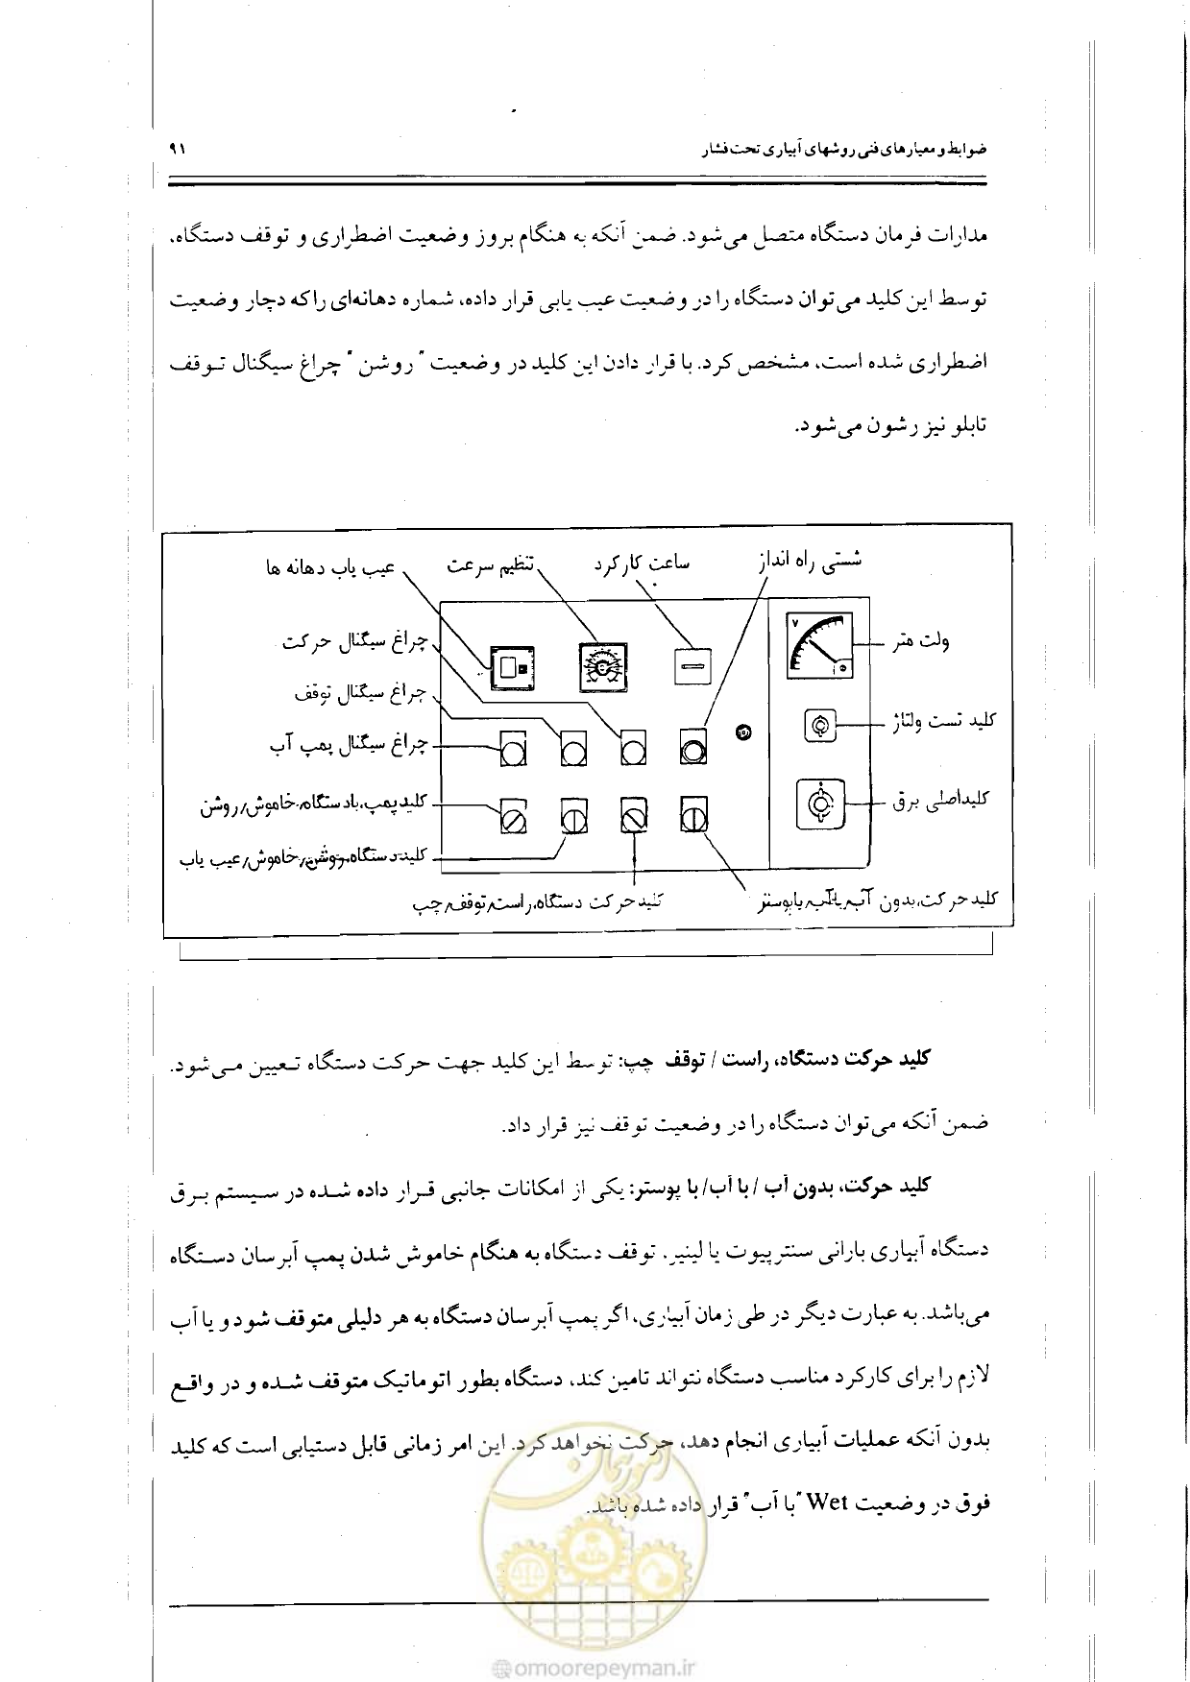 ضوابط و معیارهای فنی روشهای آبیاری تحت فشار
۹۱
مدارات فرمان دستگاه متصل می‌شود. ضمن آنکه به هنگام بروز وضعیت اضطراری و توقف دستگاه،
توسط این کلید می‌توان دستگاه را در وضعیت عیب یابی قرار داده، شماره دهانه‌ای را که دچار وضعیت
اضطراری شده است، مشخص کرد. با قرار دادن این کلید در وضعیت " روشن " چراغ سیگنال توقف
تابلو نیز رشون می‌شود.
شستی راه انداز
ساعت کارکرد
تنظیم سرعت
عیب یاب دهانه ها
ولت متر
V
چراغ سیگنال حرکت
چراغ سیگنال توقف
کلید تست ولتاژ
چراغ سیگنال پمپ آب
کلیداصلی برق
کلیدپمپ،بادستگاه،خاموش/روشن
کلیددستگاه،روشن/خاموش/عیب یاب
کلیدحرکت،بدون آب/باآب/بابوستر
کلیدحرکت دستگاه،راست/توقف/چپ
کلید حرکت دستگاه، راست / توقف چپ: توسط این کلید جهت حرکت دستگاه تعیین می‌شود.
ضمن آنکه می‌توان دستگاه را در وضعیت توقف نیز قرار داد.
کلید حرکت، بدون آب / با آب/ با پوستر: یکی از امکانات جانبی قرار داده شده در سیستم برق
دستگاه آبیاری بارانی سنترپیوت یا لینیر، توقف دستگاه به هنگام خاموش شدن پمپ آبرسان دستگاه
می‌باشد. به عبارت دیگر در طی زمان آبیاری، اگر پمپ آبرسان دستگاه به هر دلیلی متوقف شود و یا آب
لازم را برای کارکرد مناسب دستگاه نتواند تامین کند، دستگاه بطور اتوماتیک متوقف شده و در واقع
بدون آنکه عملیات آبیاری انجام دهد، حرکت نخواهد کرد. این امر زمانی قابل دستیابی است که کلید
فوق در وضعیت Wet "با آب" قرار داده شده باشد.
امور پیمان
@omoorepeyman.ir